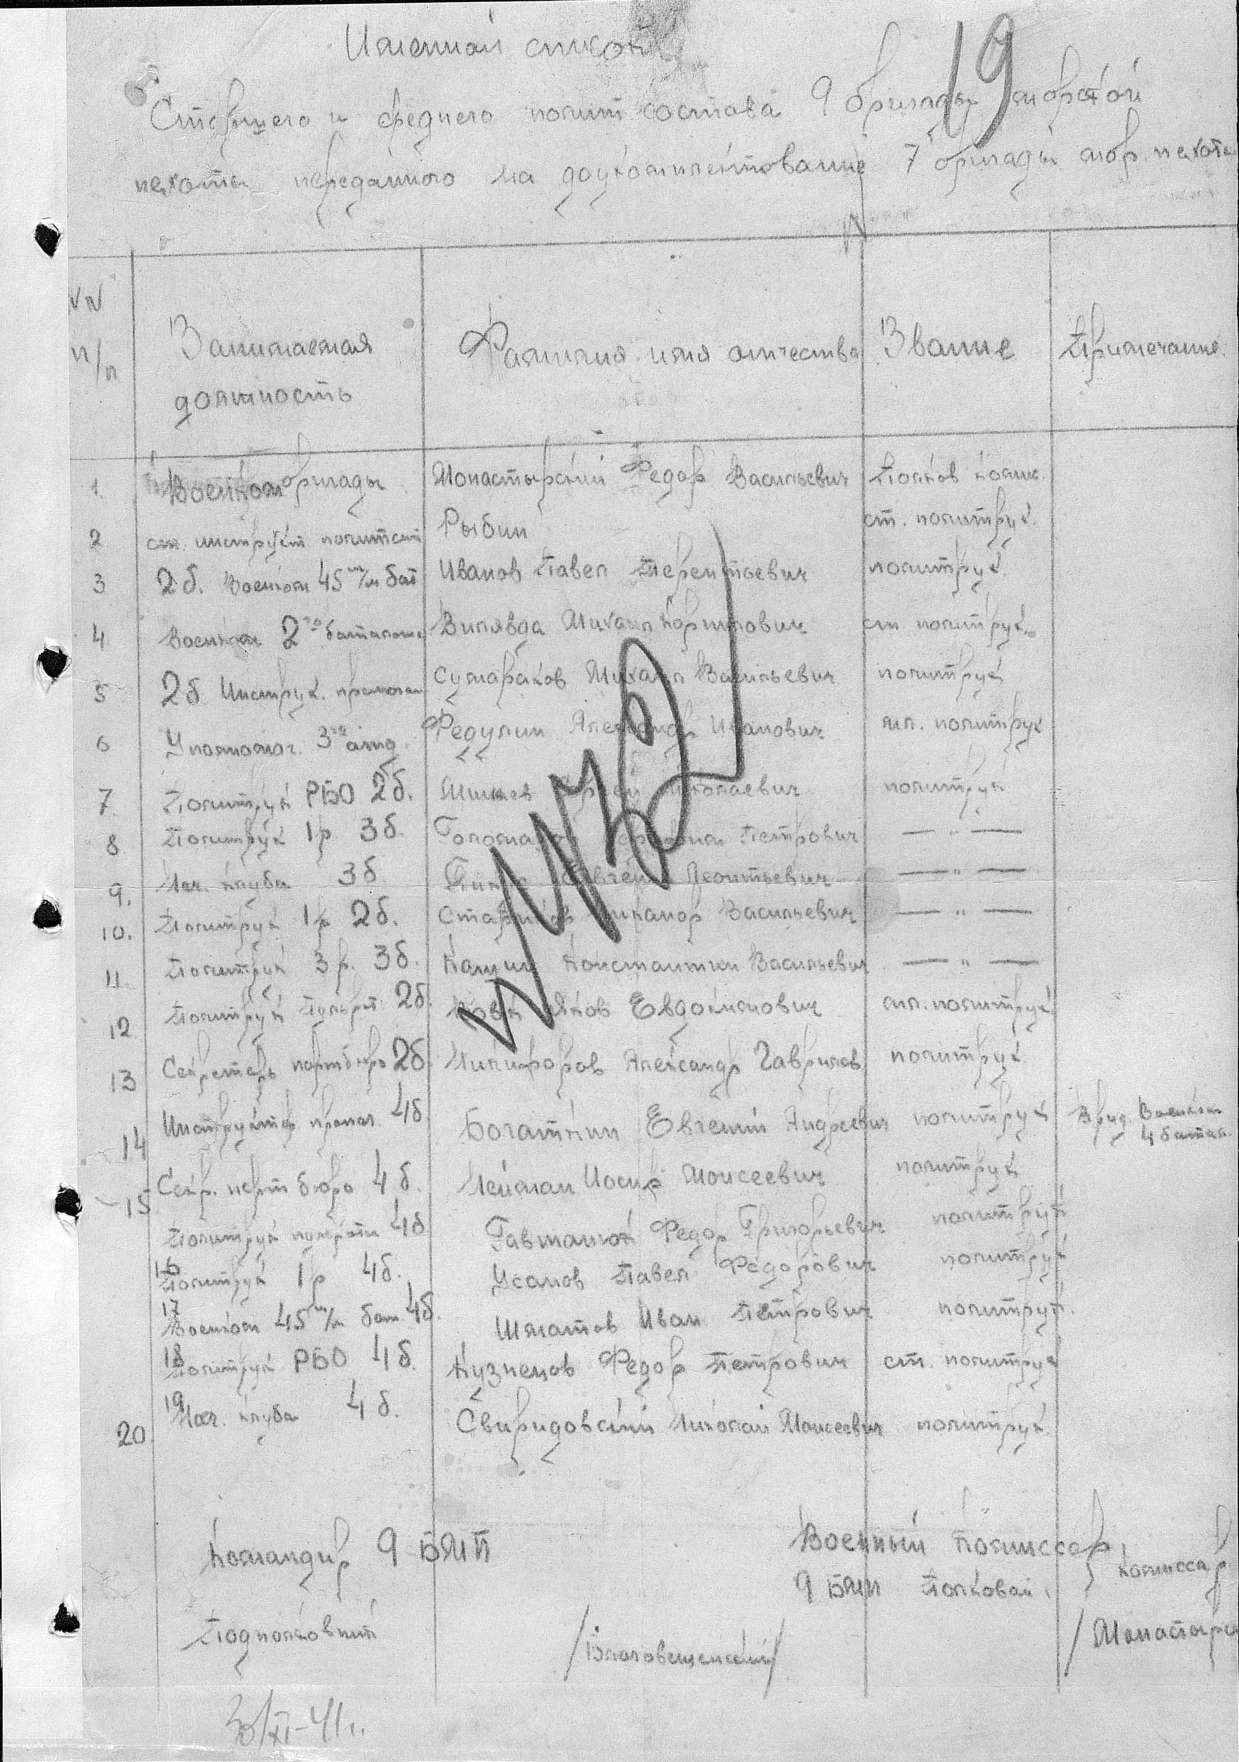 Именной список
19
Старшего и среднего полит состава 9 бригады морской
пехоты переданного на доукомплектование 7 бригады мор. пехоты
NN п/п Занимаемая должность Фамилия имя отчества Звание Примечание
1 Военком бригады Монастырский Федор Васильевич Полков. комис.
2 ст. инструкт. Рыбин ст. политрук.
3 2б. Военком 45 м/м бат Иванов Павел Терентьевич политрук.
4 Военком 2го батальона Вилявда Михаил ст политрук.
5 2б Инструк. Сумароков Михаил Васильевич политрук
6 Уполномоч. 3го Федулин Александр Иванович мл. политрук
7 Политрук РБО 2б. Николаевич политрук
8 Политрук 1р 3б. Петрович — " —
9. Нач. клуба 3б Леонтьевич — " —
10. Политрук 1р 2б. Никанор Васильевич — " —
11 Политрук 3р. 3б. Константин Васильевич — " —
12 Политрук пульрот 2б. Яков Евдокимович мл. политрук
13 Секретарь партбюро 2б. Никифоров Александр Гаврилов политрук
14 Инструктор пропаг. 4б. Богаткин Евгений Андреевич политрук Врид. Военком 4 батал.
15 Секр. парт бюро 4б. Нейман Иосиф Моисеевич политрук
16 Политрук пульроты 4б Гавтанюк Федор Григорьевич политрук
17 Политрук 1р 4б. Усанов Павел Федорович политрук
18 Военком 45 м/м бат 4б. Шматов Иван Петрович политрук.
19 Политрук РБО 4б. Кузнецов Федор Петрович ст. политрук
20 Нач. клуба 4б. Свиридовский Николай Моисеевич политрук
Командир 9 БМП
Военный Комиссар,
9 БМП Полковой комиссар
Подполковник
/Благовещенский/
/Монастырс
30/XI-41г.